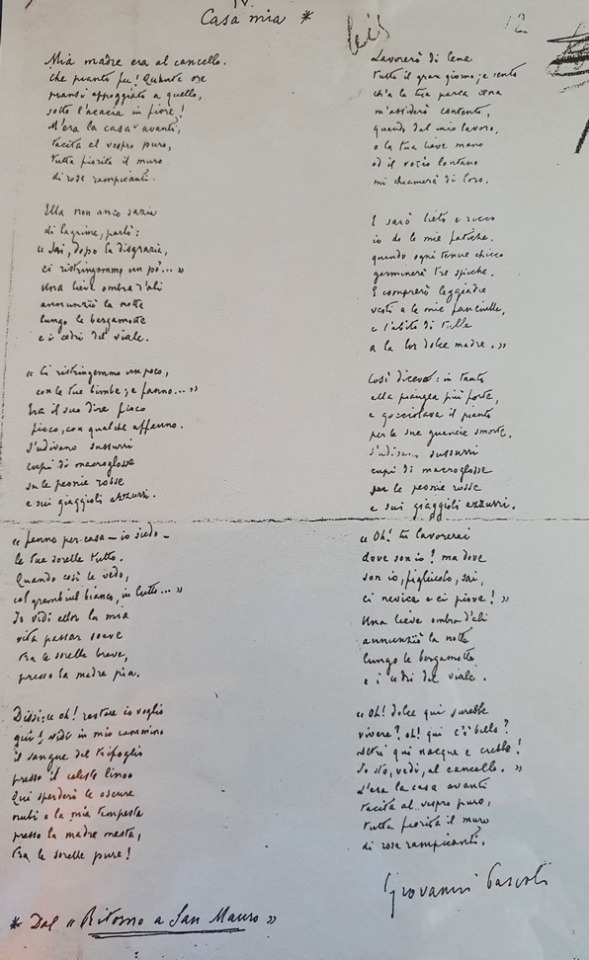 IV.
Casa mia *
12
Mia madre era al cancello.
Che pianto fu! Quante ore
piansi appoggiato a quello,
sotto l'acacia in fiore!
M'era la casa avanti,
tacita al vespro puro,
tutta fiorita il muro
di rose rampicanti.
Ella non anco sazia
di lagrime, parlò:
« Sai, dopo la disgrazia,
ci ristringemmo un po'... »
Una lieve ombra d'ali
annunziò la notte
lungo le bergamotte
e i cedri del viale.
« Ci ristringemmo un poco,
con le tue bimbe; e fanno... »
Era il suo dire fioco
fioco, con qualche affanno.
S'udivano sussurri
cupi di macroglosse
su le peonie rosse
e sui giaggioli azzurri.
« fanno per casa — io siedo —
le tue sorelle tutto.
Quando così le vedo,
col grembiul bianco, in lutto... »
Io vidi allor la mia
vita passar soave
tra le sorelle brave,
presso la madre pia.
Dissi: « oh! restare io voglio
qui! vidi in mio cammino
il sangue del trifoglio
presso il celeste lino.
Qui sperderò le oscure
nubi e la mia tempesta
presso la madre mesta,
tra le sorelle pure!
Lavorerò di lena
tutto il gran giorno; e sento
ch'a la tua parca cena
m'assiderò contento,
quando dal mio lavoro,
o la tua lieve mano
od il vocìo lontano
mi chiamerà di loro.
E sarò lieto e ricco
io de le mie fatiche.
quando ogni tenue chicco
germinerà tre spiche.
E comprerò leggiadre
vesti a le mie fanciulle,
e l'abito di tulle
a la lor dolce madre. »
Così dicevo: in tanto
ella piangea più forte,
e gocciolava il pianto
per le sue guancie smorte.
S'udivano sussurri
cupi di macroglosse
su le peonie rosse
e sui giaggioli azzurri.
« Oh! tu lavorerai
dove son io? ma dove
son io, figliuolo, sai,
ci nevica e ci piove! »
Una lieve ombra d'ali
annunziò la notte
lungo le bergamotte
e i cedri del viale.
« Oh! dolce qui sarebbe
vivere? oh! qui c'è bello?
Altri qui nacque e crebbe!
Io sto, vedi, al cancello. »
M'era la casa avanti
tacita al vespro puro,
tutta fiorita il muro
di rose rampicanti.
Giovanni Pascoli
* Dal « Ritorno a San Mauro »